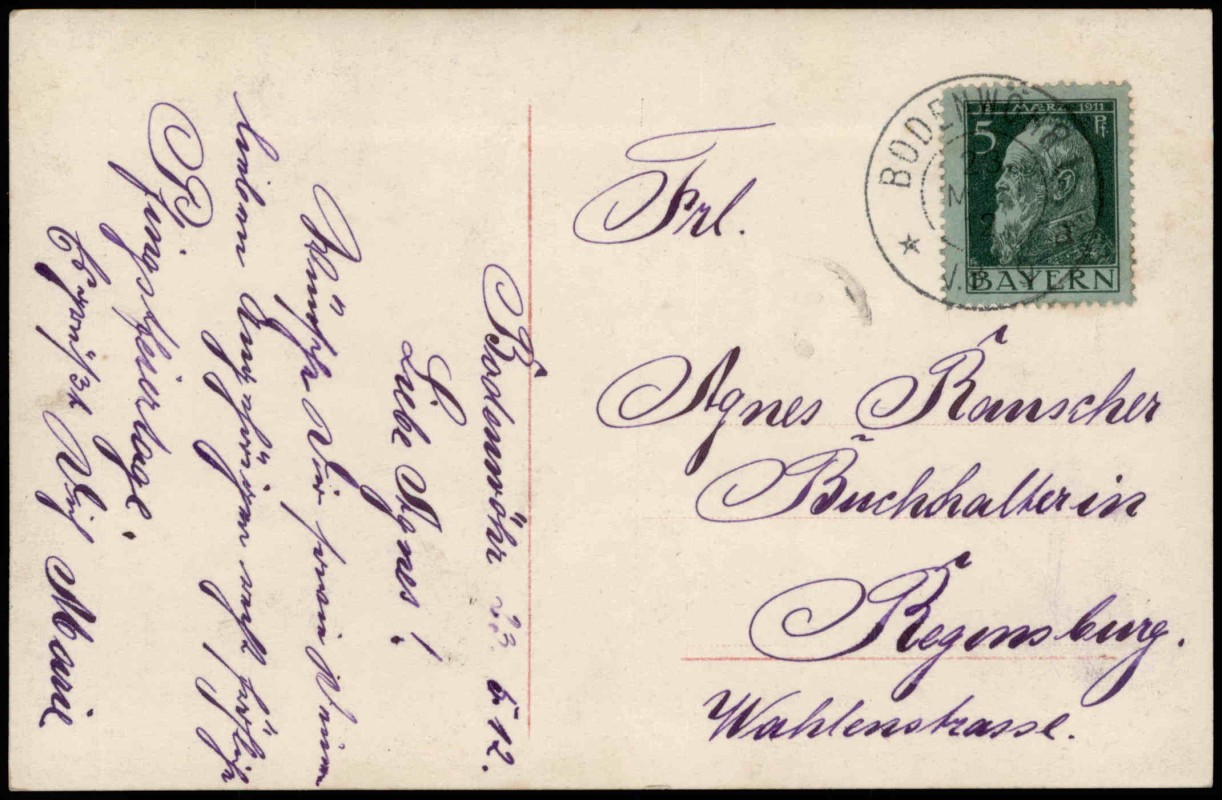 Bodenwöhr 23. 5 12.
Liebe Agnes!
Wünsche Dir sowie Deinen
lieben Angehörigen recht fröhliche
Pfingstfeiertage.
Es grüßt Dich Marie
Frl.
Agnes Rauscher
Buchhalterin
Regensburg.
Wahlenstrasse.
BODENWÖHR
MÆRZ 1911
5 Pf.
BAYERN